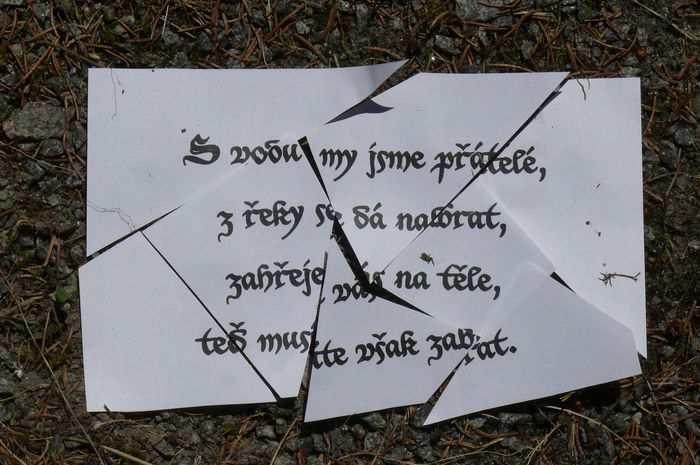 S vodu my jsme přátelé,
z řeky se dá nabrat,
zahřeje vás na těle,
teď musíte však zabrat.